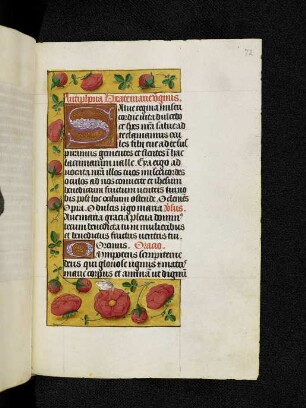 Antiphona Beate marie virginis.
Salue regina miseri
cordie vita dulcedo
et spes nra salue ad
te clamamus exu
les filij eue ad te sus
piramus gementes et flentes in hac
lacrimarum ualle. Eya ergo ad
uocata nra illos tuos misericordes
oculos ad nos conuerte et ihesum
benedictum fructum uentris tui no
bis post hoc exilium ostende. O clemens
O pia. O dulcis virgo maria
Aue maria gracia plena domin
tecum benedicta tu in mulieribus
et benedictus fructus uentris tui.
Oremus. Oracio.
Omnipotens sempiterne
deus qui gloriose virginis et matris
marie corpus et animam ut dignum